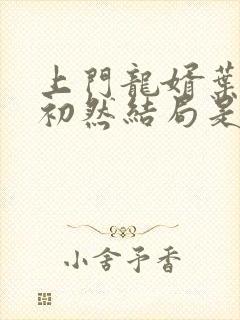 上門龍婿葉
初然結局是
小舍予香